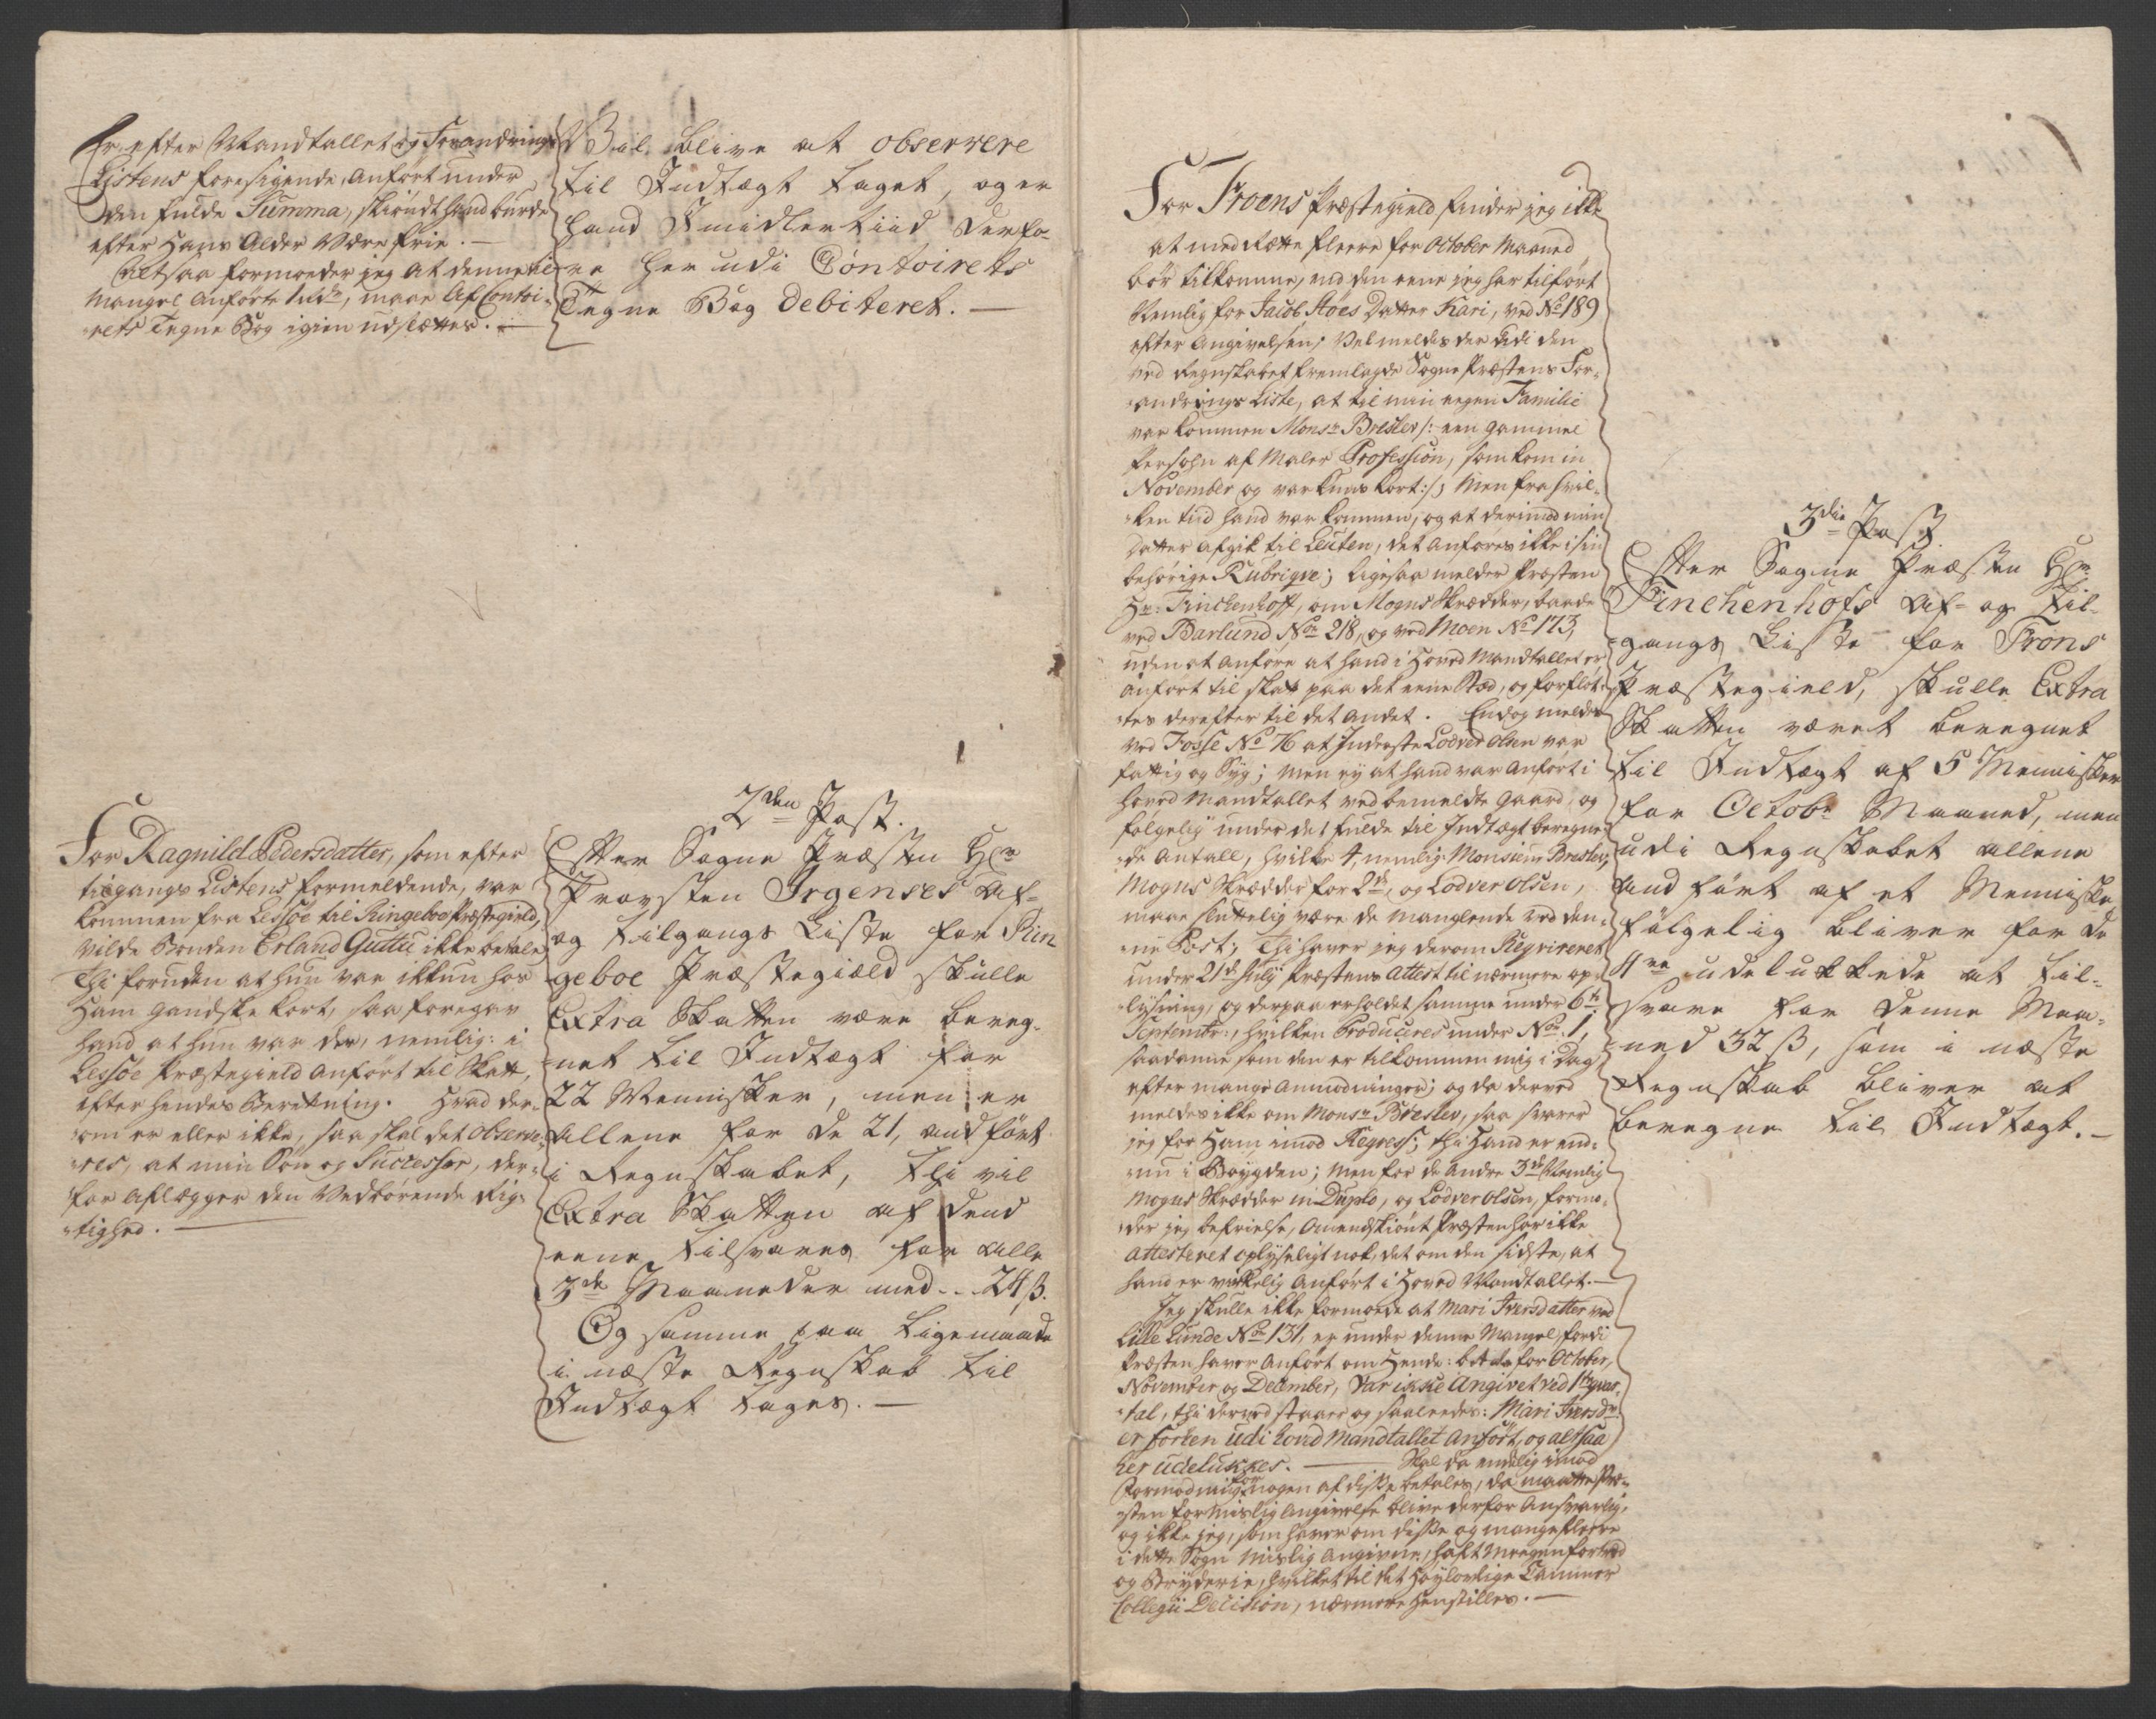 Er efter Mandtallet og Forandrings
Listens foresigende, anfört under
den fulde Summa, skiöndt hand burde
efter Hans Alder være frie. —
Altsaa formoeder jeg at denne til
Mangel anförte , maae af Contoi-
rets Tegne Bog igien udslættes. —
Vil blive at observere
til Indtægt taget, og er
hand Imidlertiid derfo-
re her udi Contoirets
Tegne Bog debiteret. —
For Ragnild Pedersdatter, som efter
tilgangs Listens formeldende, var
kommen fra Lessöe til Ringeboe Præstegield,
vilde Bonden Erland Guttu ikke betale
Thi foruden at hun var ikkun hos
Ham gandske kort, saa foregav
hand at hun var der, nemlig: i
Lessöe Præstegield anfört til Skatt,
efter hendes Beretning. Hvad der-
om er eller ikke, saa skal det observe-
res, at min Sön og Successor, der-
for aflægger den Vedbörende Rig-
tighed. —
2den Post.
Efter Sogne Præsten Hr
Provsten Irgenses Af-
og tilgangs Liste for Rin
geboe Præstegiæld skulle
Extra Skatten være bereg-
net til Indtægt for
22 Mennisker, men er
allene for de 21, andfört
i Regnskabet, thi vil
Extra Skatten af dend
eene tilsvares for alle
3de Maaneder med .. 24 ß.
Og samme paa ligemaade
i næste Regnskab til
Indtægt tages. —
For Froens Præstegield finder jeg ikke
at med Rætte fleere for October Maaned
bör tilkomme, end den eene jeg har tilfört
Nemlig for Jacob Hoes Datter Kari, ved No 189
efter Angivelsen; Vel meldes der udi den
ved Regnskabet fremlagde Sogne Præstens For-
andrings Liste, at til min egen Familie
var kommen Monsr Bresler /: een gammel
Persohn af Maler Profession, som kom in
November og var kuns kort :/ Men fra hvil-
ken tiid hand var kommen, og at derimod min
Datter afgik til Leuten, det anföres ikke i sin
behörige Rubrique; ligesaa melder Præsten
Hr: Finchenhoff, om Mogns Skrædder, baade
ved Barlund No 218, og ved Moen No 173,
uden at anföre at hand i Hoved Mandtallet er
anfört til skatt paa det eene Stæd, og forflöt-
tes derefter til det andet. Endog meldes
ved Fosse No 76 at Inderste Lodver Olsen var
fattig og Syg; Men ey at hand var anfört i
hoved Mandtallet ved bemeldte Gaard, og
fölgelig under det fulde til Indtægt beregne-
de Antall, hvilke 4, nemlig: Monsieur Bresler,
Mogns Skrædder for 2de, og Lodver Olsen,
maae sluttelig være de manglende ved den-
ne Post; Thi haver jeg derom Reqvireret
under 21de July Præstens Attest til nærmere op-
lysning, og derpaa erholdet samme under 6te
Septembr:, hvilken Produceres under No. 1,
saadanne som den er tilkommen mig i Dag
efter mange Anmodninger; og da derved
meldes ikke om Monsr Bresler, saa svarer
jeg for Ham imod Regress; thi Hand er end-
nu i Böygden; Men for de Andre 3de Nemlig
Mogns Skrædder in Duplo, og Lodver Olsen, formo-
der jeg befrielse, Omendskiönt Præsten har ikke
Attesteret oplyseligt nok, det om den sidste, at
hand er virkelig anfört i Hoved Mandtallet. —
Jeg skulle ikke formoede at Mari Iversdatter ved
Lille Lunde No 131, er under denne Mangel, fordi
Præsten haver anfört om Hende: betale for October,
November og December, Var ikke Angivet ved 1te qvar-
tal, thi derved staaer og saaledes: Mari Iversdr
er forhen udi hovid Mandtallet anfört, og altsaa
her udelukkes. — Skal da endelig imod
Formodning for nogen af disse betales, da maatte Præ-
sten for mislig Angivelse blive derfor Ansvarlig,
og ikke jeg, som haver om disse og mange fleere
i dette Sogn mislig Angivne, haft megen fortred
og Bryderie, hvilket til det Höylovlige Cammer
Collegii Decision, nærmere henstilles. —
3die Post
Efter Sogne Præsten Hr
Finchenhofs Af- og til-
gangs Liste for Frons
Præstegield, skulle Extra
Skatten været beregnet
til Indtægt af 5 Mennisker
for Octobr Maaned, men
udi Regnskabet allene
andfört af et Menniske,
fölgelig bliver for de
4re udelukkede at til-
svare for denne Maa-
ned 32 ß, som i næste
Regnskab bliver at
beregne til Indtægt. —